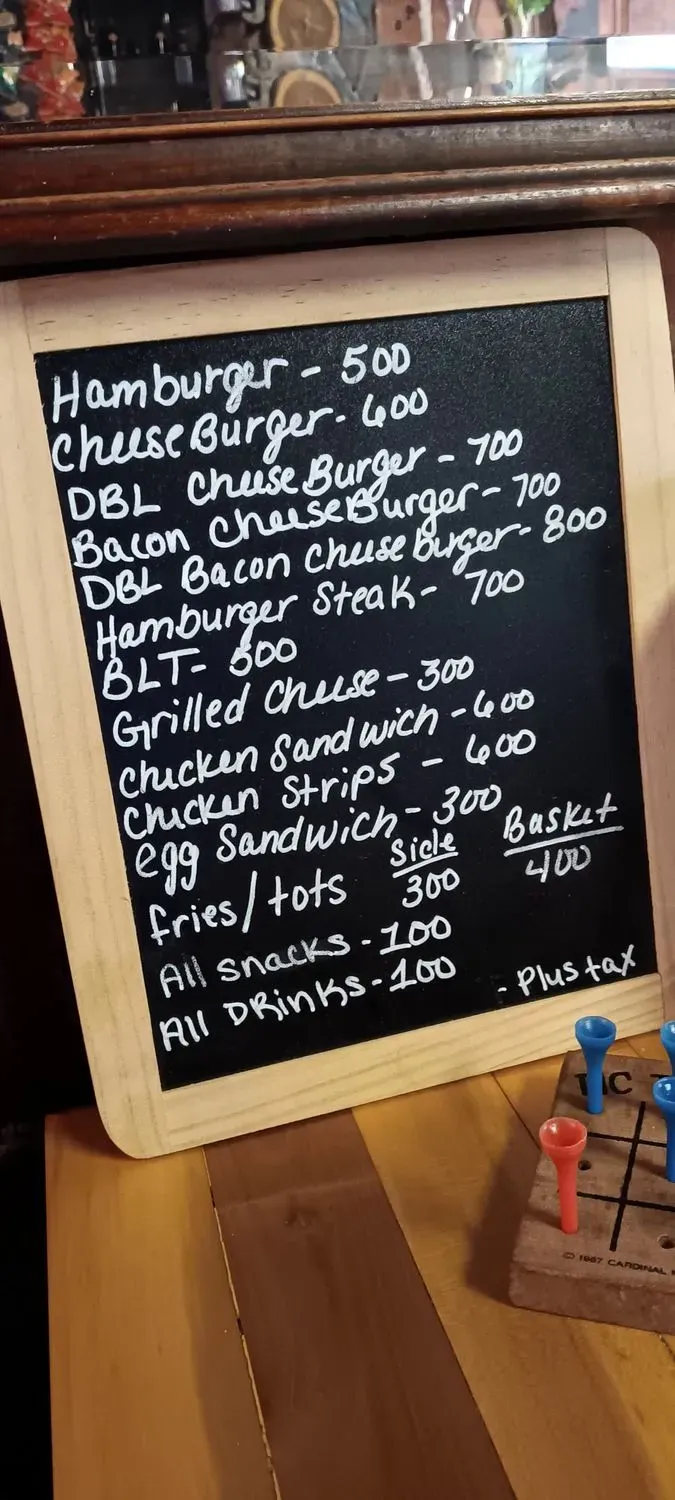 Hamburger - 500
Cheese Burger - 600
DBL Cheese Burger - 700
Bacon Cheese Burger - 700
DBL Bacon Cheese burger - 800
Hamburger Steak - 700
BLT - 500
Grilled Cheese - 300
Chicken Sandwich - 600
Chicken Strips - 600
egg Sandwich - 300
Side Basket
fries/tots 300 400
All snacks - 100
All DRinks - 100
- Plus tax
TIC
© 1987 CARDINAL